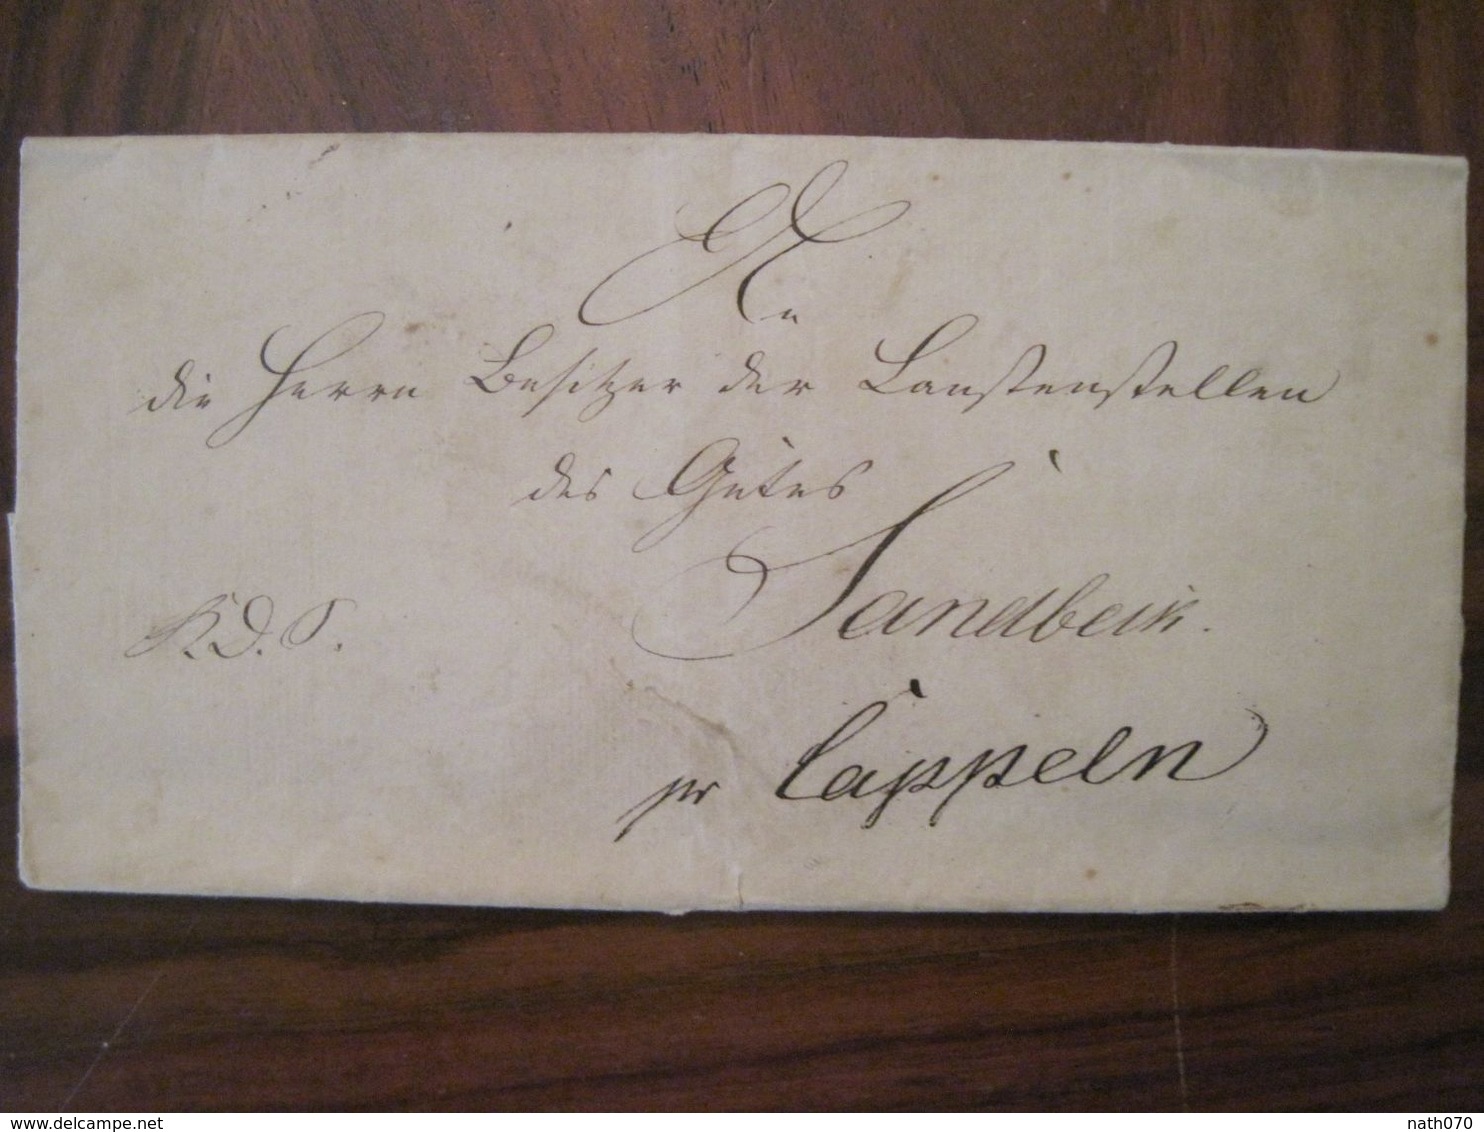 An
die Herrn Besitzer der Lanstenstellen
des Gutes
Sandbeck.
K.D.S.
pr Cappeln
www.delcampe.net
nath070